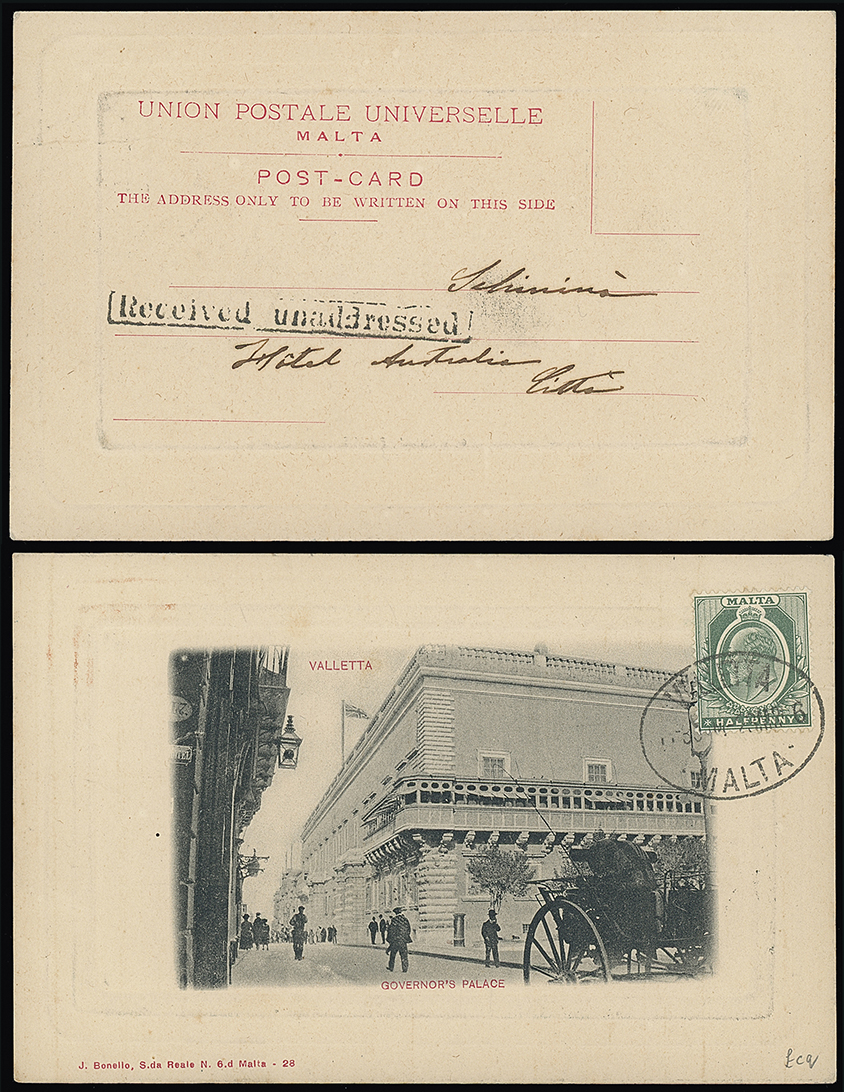 UNION POSTALE UNIVERSELLE
MALTA
POST-CARD
THE ADDRESS ONLY TO BE WRITTEN ON THIS SIDE
Schininà
Received unaddressed
Hôtel Australia
Città
MALTA
HALFPENNY
VALLETTA
MALTA
GOVERNOR'S PALACE
J. Bonello, S.da Reale N. 6.d Malta - 28